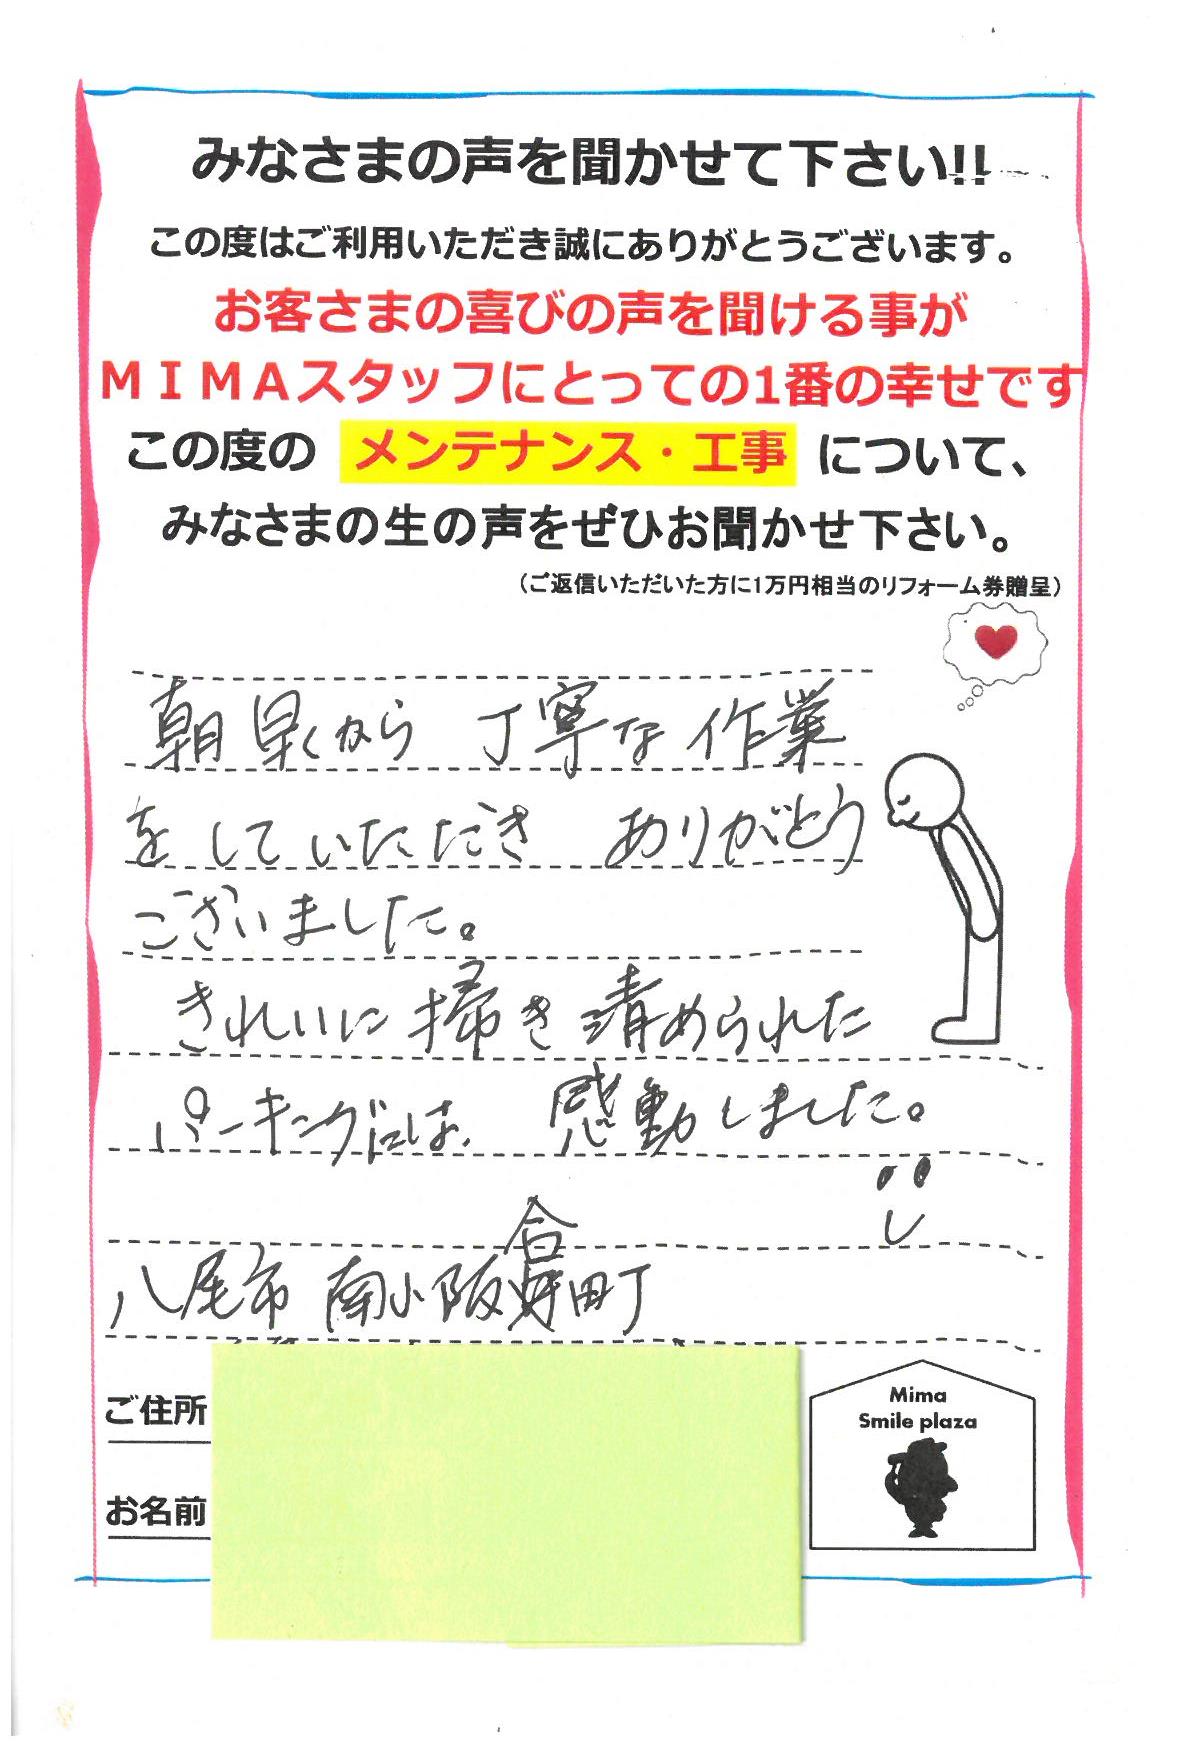 みなさまの声を聞かせて下さい!!
この度はご利用いただき誠にありがとうございます。
お客さまの喜びの声を聞ける事が
ＭＩＭＡスタッフにとっての1番の幸せです
この度の メンテナンス・工事 について、
みなさまの生の声をぜひお聞かせ下さい。
（ご返信いただいた方に1万円相当のリフォーム券贈呈）
朝早くから 丁寧な作業
をしていただき ありがとう
ございました。
きれいに掃き清められた
パーキングには、感動しました。
八尾市 南小阪合町
ご住所
お名前
Mima
Smile plaza